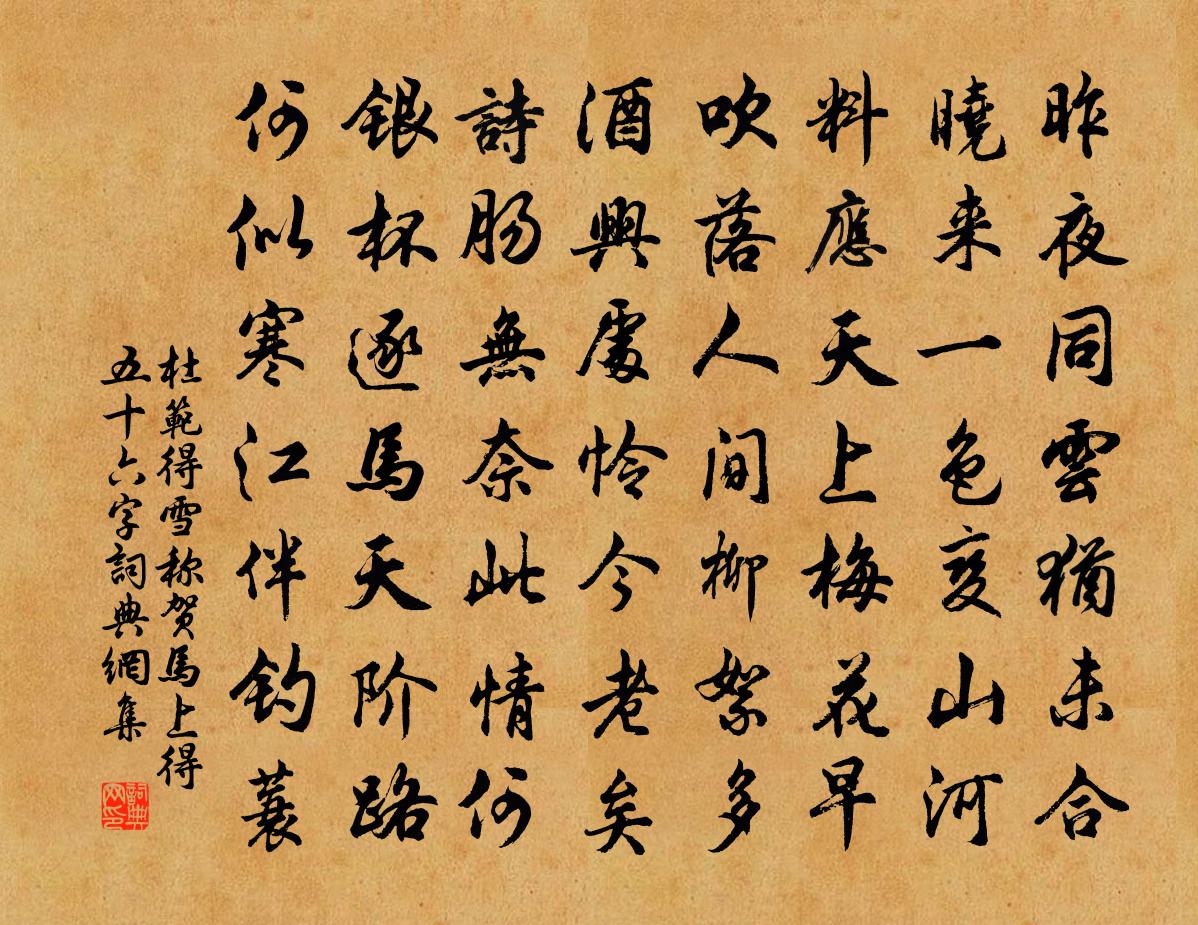 昨夜同雲猶未合
曉来一色变山河
料應天上梅花早
吹落人间柳絮多
酒興處怜今老矣
詩肠無奈此情何
银杯逐馬天阶路
何似寒江伴钓蓑
杜範得雪称贺馬上得
五十六字詞典網集
詞典网印